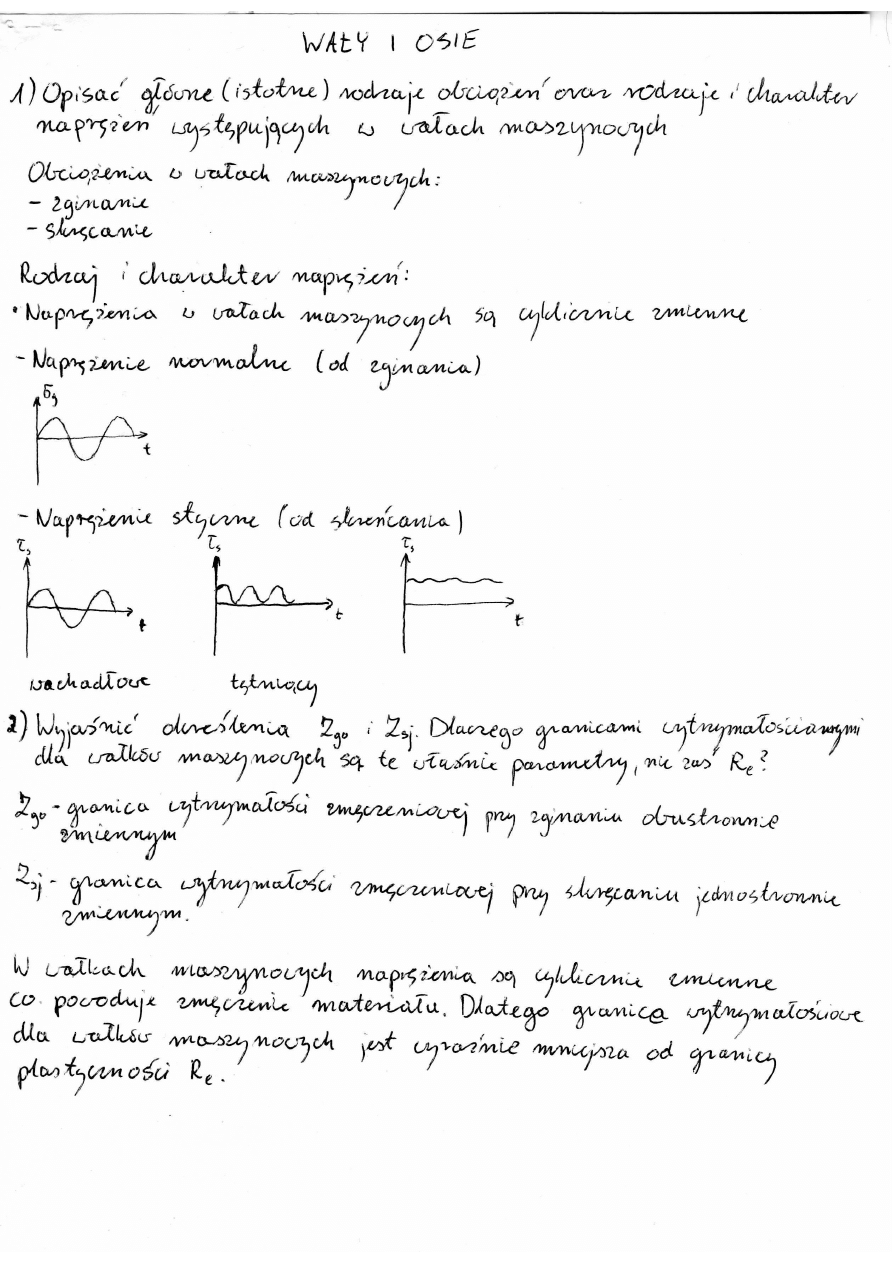 WAŁY I OSIE
1) Opisać główne (istotne) rodzaje obciążeń oraz rodzaje i charakter
naprężeń, występujących w wałach maszynowych
Obciążenia w wałach maszynowych:
- zginanie
- skręcanie
Rodzaj i charakter naprężeń:
• Naprężenia w wałach maszynowych są cyklicznie zmienne
- Naprężenie normalne (od zginania)
σg
t
- Naprężenie styczne (od skreńcania)
τs τs τs
t t t
wachadłowe tętniący
2) Wyjaśnić określenia Zgo i Zsj. Dlaczego granicami wytrzymałościowymi
dla wałków maszynowych są te właśnie parametry, nie zaś Re?
Zgo - granica wytrzymałości zmęczeniowej przy zginaniu obustronnie
zmiennym
Zsj - granica wytrzymałości zmęczeniowej przy skręcaniu jednostronnie
zmiennym.
W wałkach maszynowych naprężenia są cyklicznie zmienne
co powoduje zmęczenie materiału. Dlatego granica wytrzymałościowe
dla wałków maszynowych jest wyraźnie mniejsza od granicy
plastyczności Re.